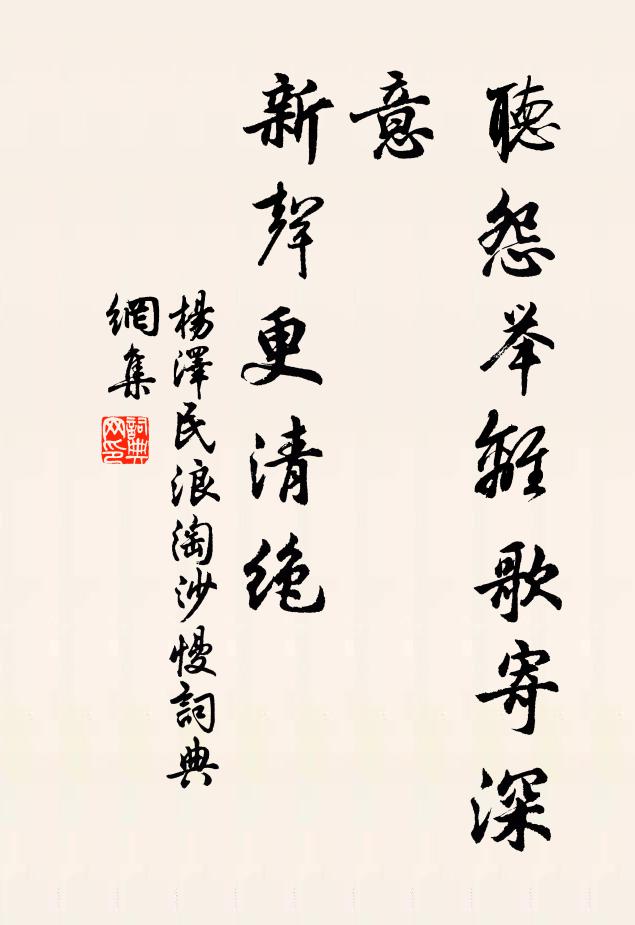 聽怨举離歌寄深
意
新聲更清绝
楊澤民浪淘沙慢詞典
網集
詞典
网印